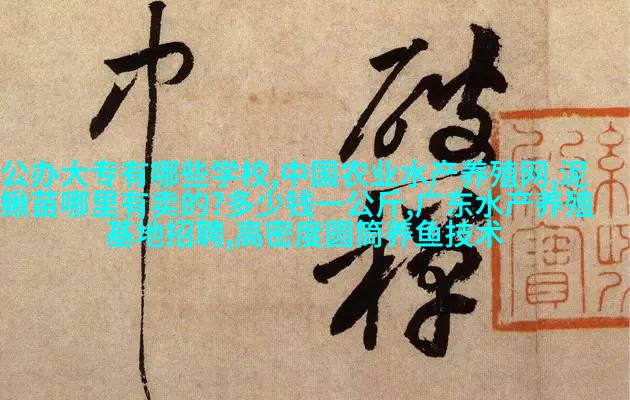 公办大专有哪些学校,中国农业水产养殖网,泥
鳅苗哪里有卖的?多少钱一公斤,广东水产养殖
基地招聘,高密度圆筒养鱼技术
破
巾